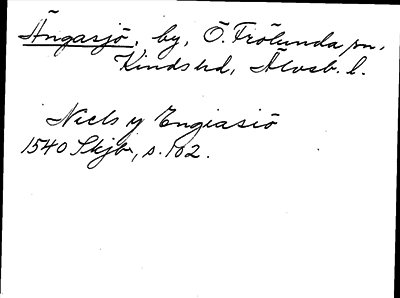 Ängasjö, by, Ö. Frölunda sn.
Kinds hd, Älvsb. l.
Niels y Engiasiö
1540 Skjb, s. 102.